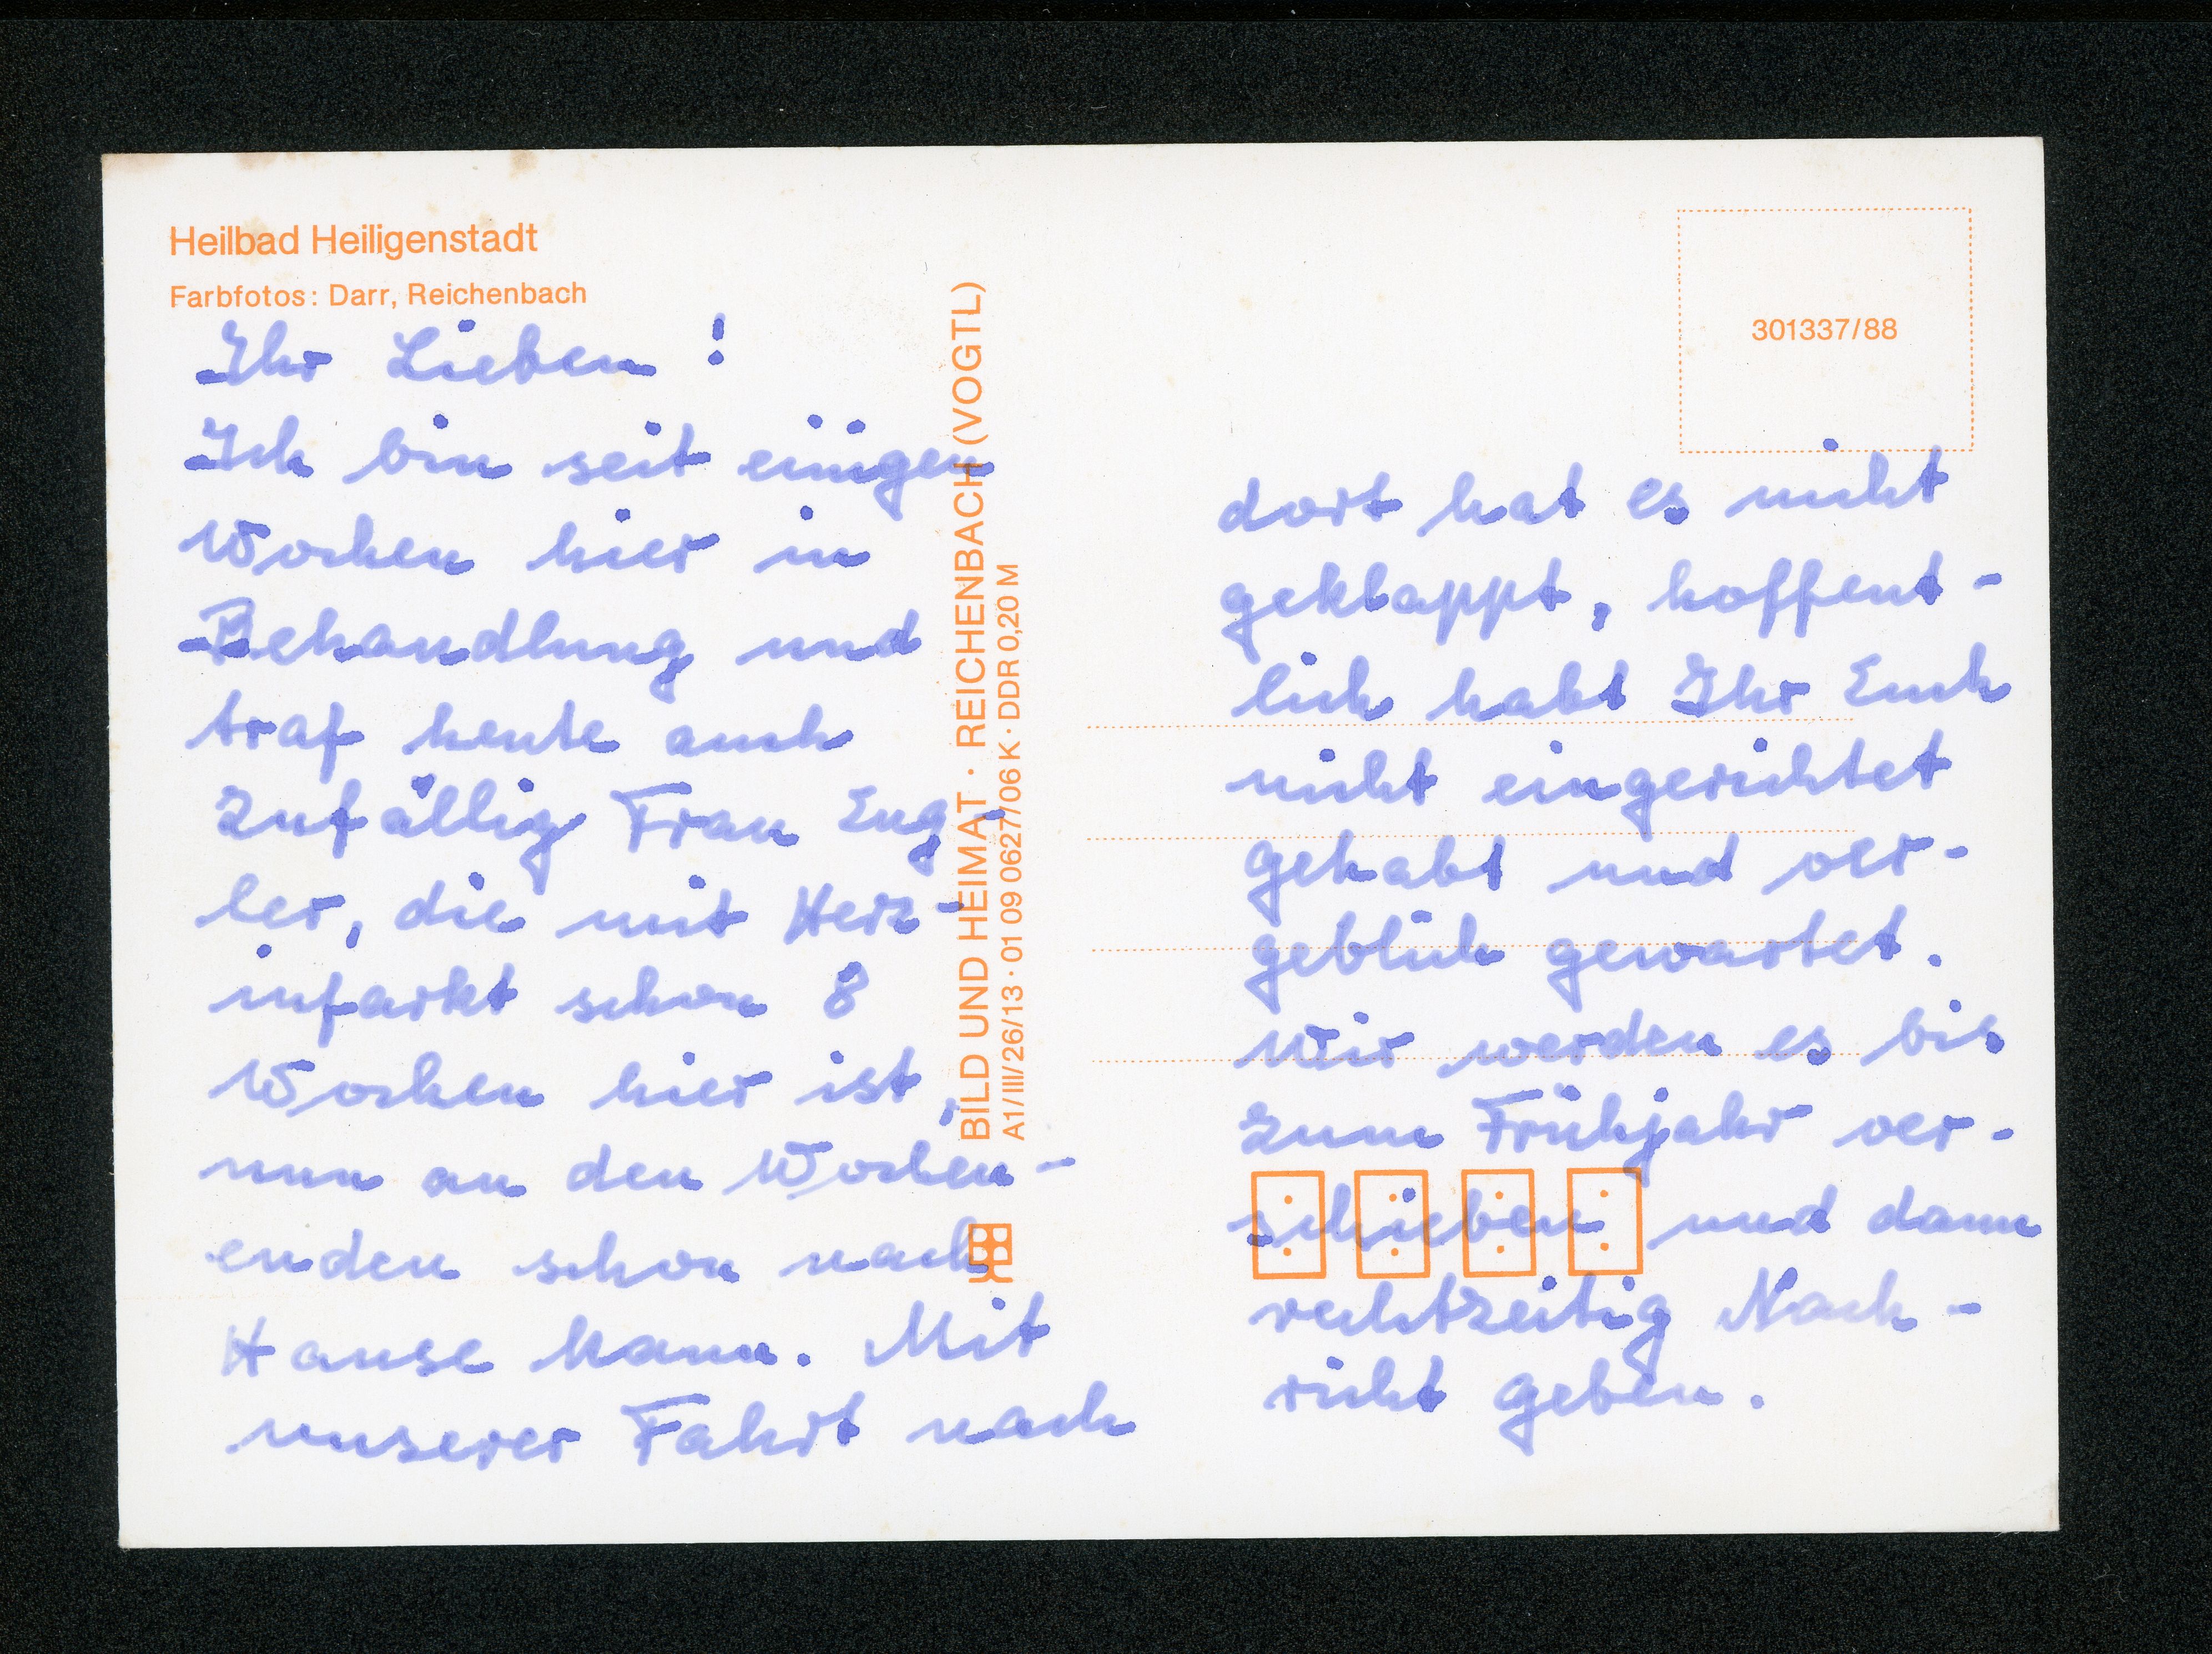 Heilbad Heiligenstadt
Farbfotos: Darr, Reichenbach
Ihr Lieben!
Ich bin seit einigen
Wochen hier in
Behandlung und
traf heute auch
zufällig Frau Eng-
ler, die mit Herz-
infarkt schon 8
Wochen hier ist,
nun an den Wochen-
enden schon nach
Hause kann. Mit
unserer Fahrt nach
BILD UND HEIMAT · REICHENBACH (VOGTL)
A1/III/26/13 · 01 09 0627/06 K · DDR 0,20 M
301337/88
dort hat es nicht
geklappt, hoffent-
lich habt Ihr Euch
nicht eingerichtet
gehabt und ver-
geblich gewartet.
Wir werden es bis
zum Frühjahr ver-
schieben und dann
rechtzeitig Nach-
richt geben.